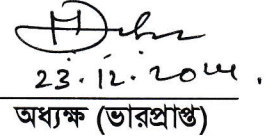 23.12.2014.
অধ্যক্ষ (ভারপ্রাপ্ত)